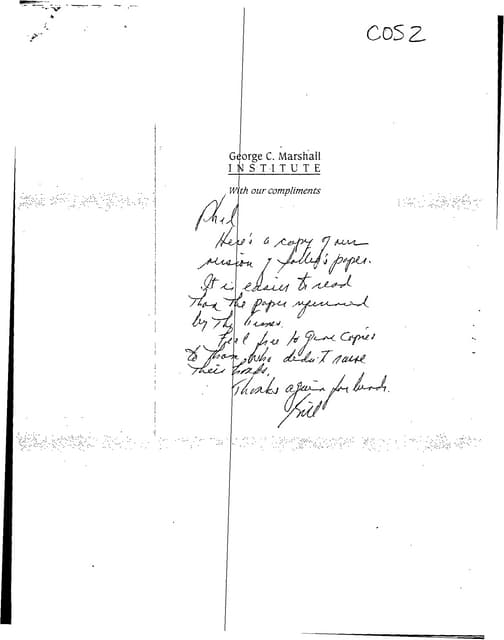 COS 2
George C. Marshall
INSTITUTE
With our compliments
Phil
Here's a copy of our
version of paper.
It is easier to read
than the paper
by the Times.
Feel free to give copies
to those who didn't raise
their hands.
Thanks again for lunch.
Bill